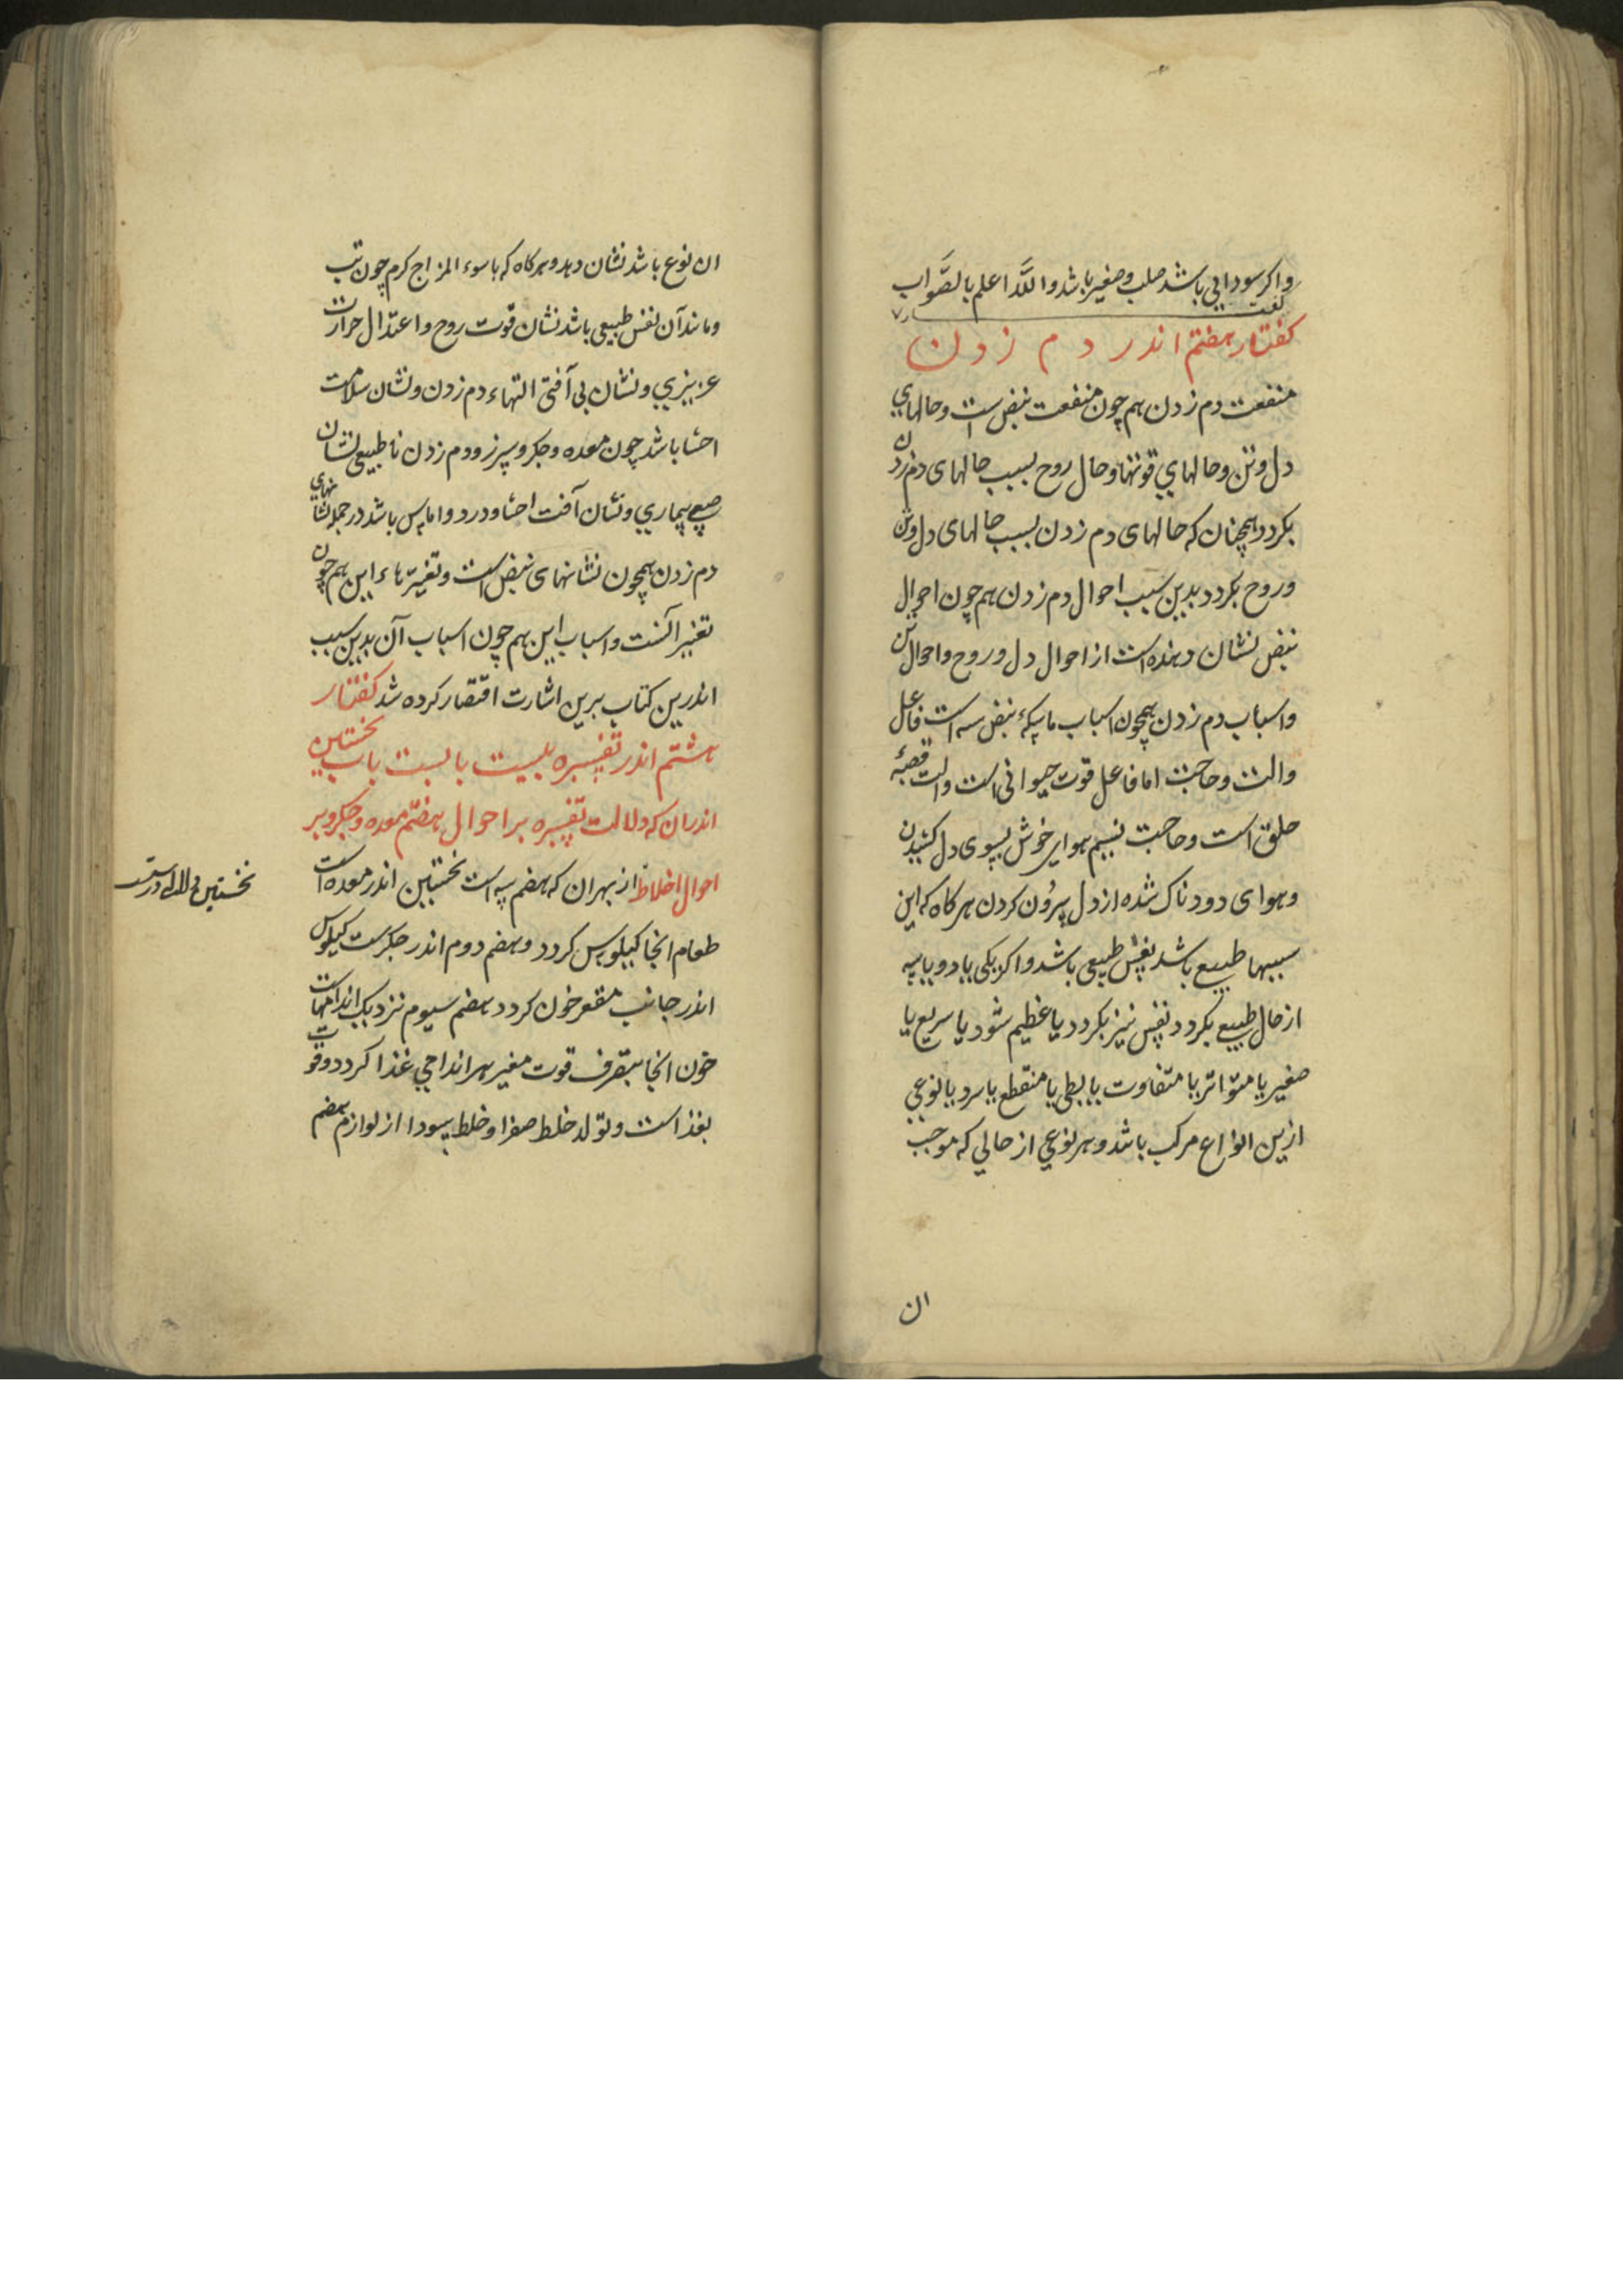 واکر سودایی باشد صلب و صغیر باشد واللّه اعلم بالصَّواب
کفتار هفتم اندر دم زدن
منفعت دم زدن هم چون منفعت نبض است و حالهای
دل و تن و حالهای قوتها و حال روح بسبب حالهای دم زدن
بکردد همچنان که حالهای دم زدن بسبب حالهای دل و تن
و روح بکردد بدین سبب احوال دم زدن هم چون احوال
نبض نشان دهنده است از احوال دل و روح و احوال تن
و اسباب دم زدن همچون اسباب ماسکهٔ نبض سه است فاعل
والت و حاجت اما فاعل قوت حیوانی است والت قصبهٔ
حلق است و حاجت نسیم هوای خوش بسوی دل کشیدن
وهوای دودناک شده از دل بیرُون کردن هرکاه که این
سببها طبیع باشد نفس طبیعی باشد واکر یکی یا دو یا سه
از حال طبیع بکردد نفس نیز بکردد یا عظیم شود یا سریع یا
صغیر یا متواتر یا متفاوت یا بطی یا منقطع یا سرد یا نوعی
ازین انواع مرکب باشد و هر نوعی از حالی که موجب
ان
ان نوع باشد نشان دهد و هرکاه که با سوء المزاج کرم چون تب
و مانند آن نفس طبیعی باشد نشان قوت روح و اعتدال حرارت
عزیزی و نشان بی آفتی التهاء دم زدن و نشان سلامت
احشا باشد چون معده و جکر و سپرز و دم زدن نا طبیعی نشان
صعبی بیماری و نشان آفت احشا و درد و اماس باشد در جمله نشانهای
دم زدن همچون نشانهای نبض است و تغیّرهاء این هم چون
تغییر آنست و اسباب این هم چون اسباب آن بدین سبب
اندرین کتاب برین اشارت اقتصار کرده شد کفتار
هشتم اندر تفسره بیست باب باب نخستین
اندران که دلالت تفسره بر احوال هضم معده و جکر و بر
احوال اخلاط از بهر ان که هضم سه است نخستین اندر معده است
طعام انجا کیلوس کردد و هضم دوم اندر جکرست کیلوس
اندر جانب مقعر خون کردد هضم سیوم نزدیک اندامهاست
خون انجا بتصرف قوت مغیر هر اندامی غذا کردد و قوت
بغذ است و تولد خلط صفرا و خلط سودا از لوازم هضم